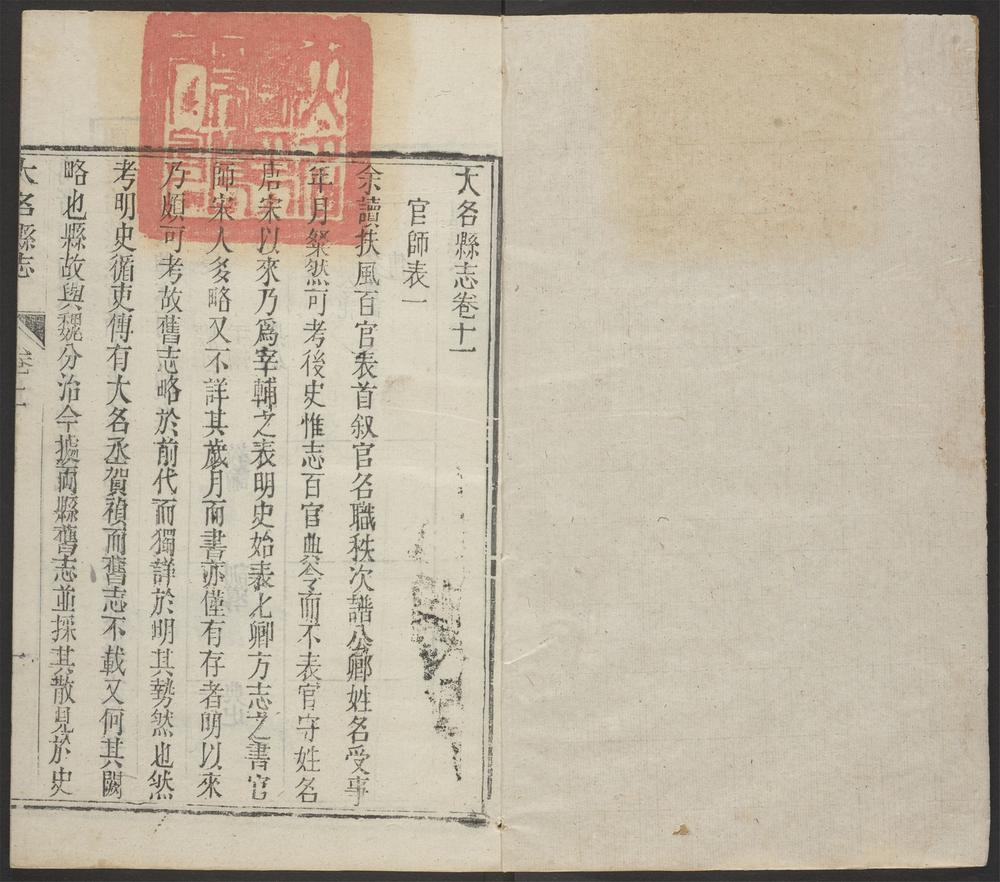 大名縣志卷十一
官師表一
余讀扶風百官表首叙官名職秩次譜公卿姓名受事
年月粲然可考後史惟志百官典令而不表官守姓名
唐宋以來乃爲宰輔之表明史始表七卿方志之書官
師宋人多略又不詳其歲月而書亦僅有存者明以來
乃頗可考故舊志略於前代而獨詳於明其勢然也然
考明史循吏傳有大名丞賀禎而舊志不載又何其闕
略也縣故與魏分治今據兩縣舊志並採其散見於史
大名縣志
卷十一